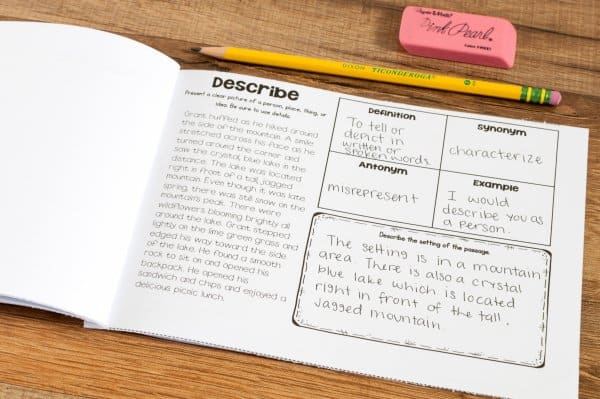 Paper Mate
Pink Pearl
Latex FREE!
DIXON TICONDEROGA
Describe
Present a clear picture of a person, place, thing, or
idea. Be sure to use details.
Grant huffed as he hiked around
the side of the mountain. A smile
stretched across his face as he
turned around the corner and
saw the crystal blue lake in the
distance. The lake was located
right in front of a tall, jagged
mountain. Even though it was late
spring, there was still snow on the
mountain's peak. There were
wildflowers blooming brightly all
around the lake. Grant stepped
lightly on the lime green grass and
edged his way toward the side
of the lake. He found a smooth
rock to sit on and opened his
backpack. He opened his
sandwich and chips and enjoyed a
delicious picnic lunch.
Definition
To tell or
depict in
written or
spoken words.
Synonym
characterize
Antonym
misrepresent
Example
I would
describe you as
a person.
Describe the setting of the passage.
The setting is in a mountain
area. There is also a crystal
blue lake which is located
right in front of the tall,
jagged mountain